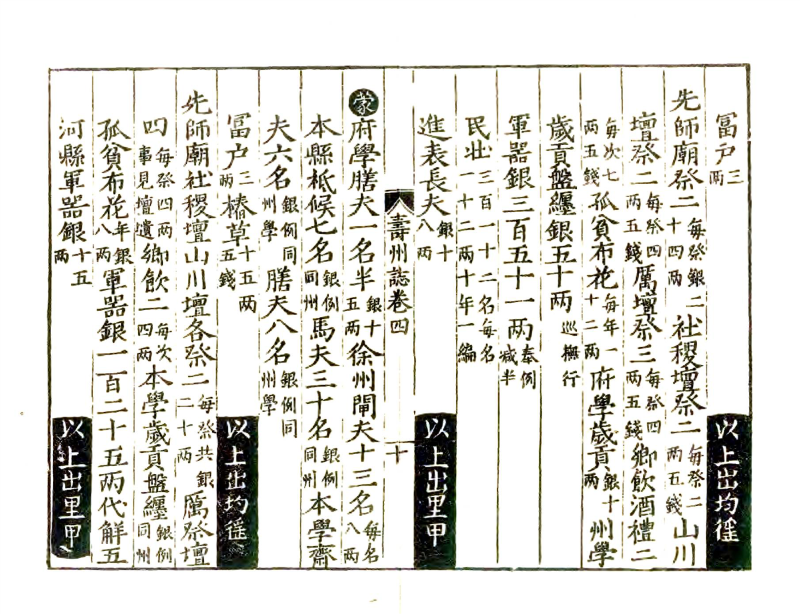 富户三两 以上出均徭
先师廟祭二每祭銀二十四两社稷壇祭二每祭二两五錢山川
壇祭二每祭四两五錢厲壇祭三每祭四两五錢鄉飲酒禮二
每次七两五錢孤貧布花每年一十二两府學歲貢銀十两州學
歲貢盤纏銀五十两巡撫行
軍器銀三百五十一两奉例减半
民壮三百一十二名每名一十二两十年一編
進表長夫銀十八两 以上出里甲
壽州誌卷四 十
蒙府學膳夫一名半銀十五两徐州閘夫十三名每名八两
本縣柢候七名銀例同州馬夫三十名銀例同州本學齋
夫六名銀例同州學膳夫八名銀例同州學
富户三两椿草十五两五錢 以上出均徭
先师廟社稷壇山川壇各祭二每祭共銀二十两厲祭壇
四每祭四两事見壇遺鄉飲二每次四两本學歲貢盤纏銀例同州
孤貧布花年銀八两軍器銀一百二十五两代解五
河縣軍器銀十五两 以上出里甲